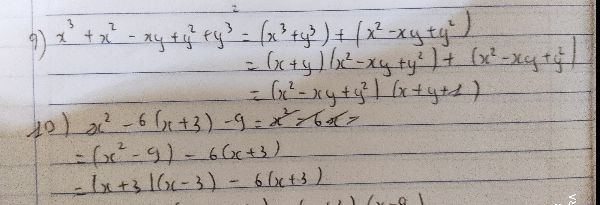 9) x³ + x² - xy + y² + y³ = (x³+y³) + (x² - xy + y²)
= (x+y)(x² - xy + y²) + (x² - xy + y²)
= (x² - xy + y²) (x + y + 1)
10) x² - 6(x+3) - 9 = x² - 6x =
= (x² - 9) - 6(x+3)
= (x+3)(x-3) - 6(x+3)
(x-9)